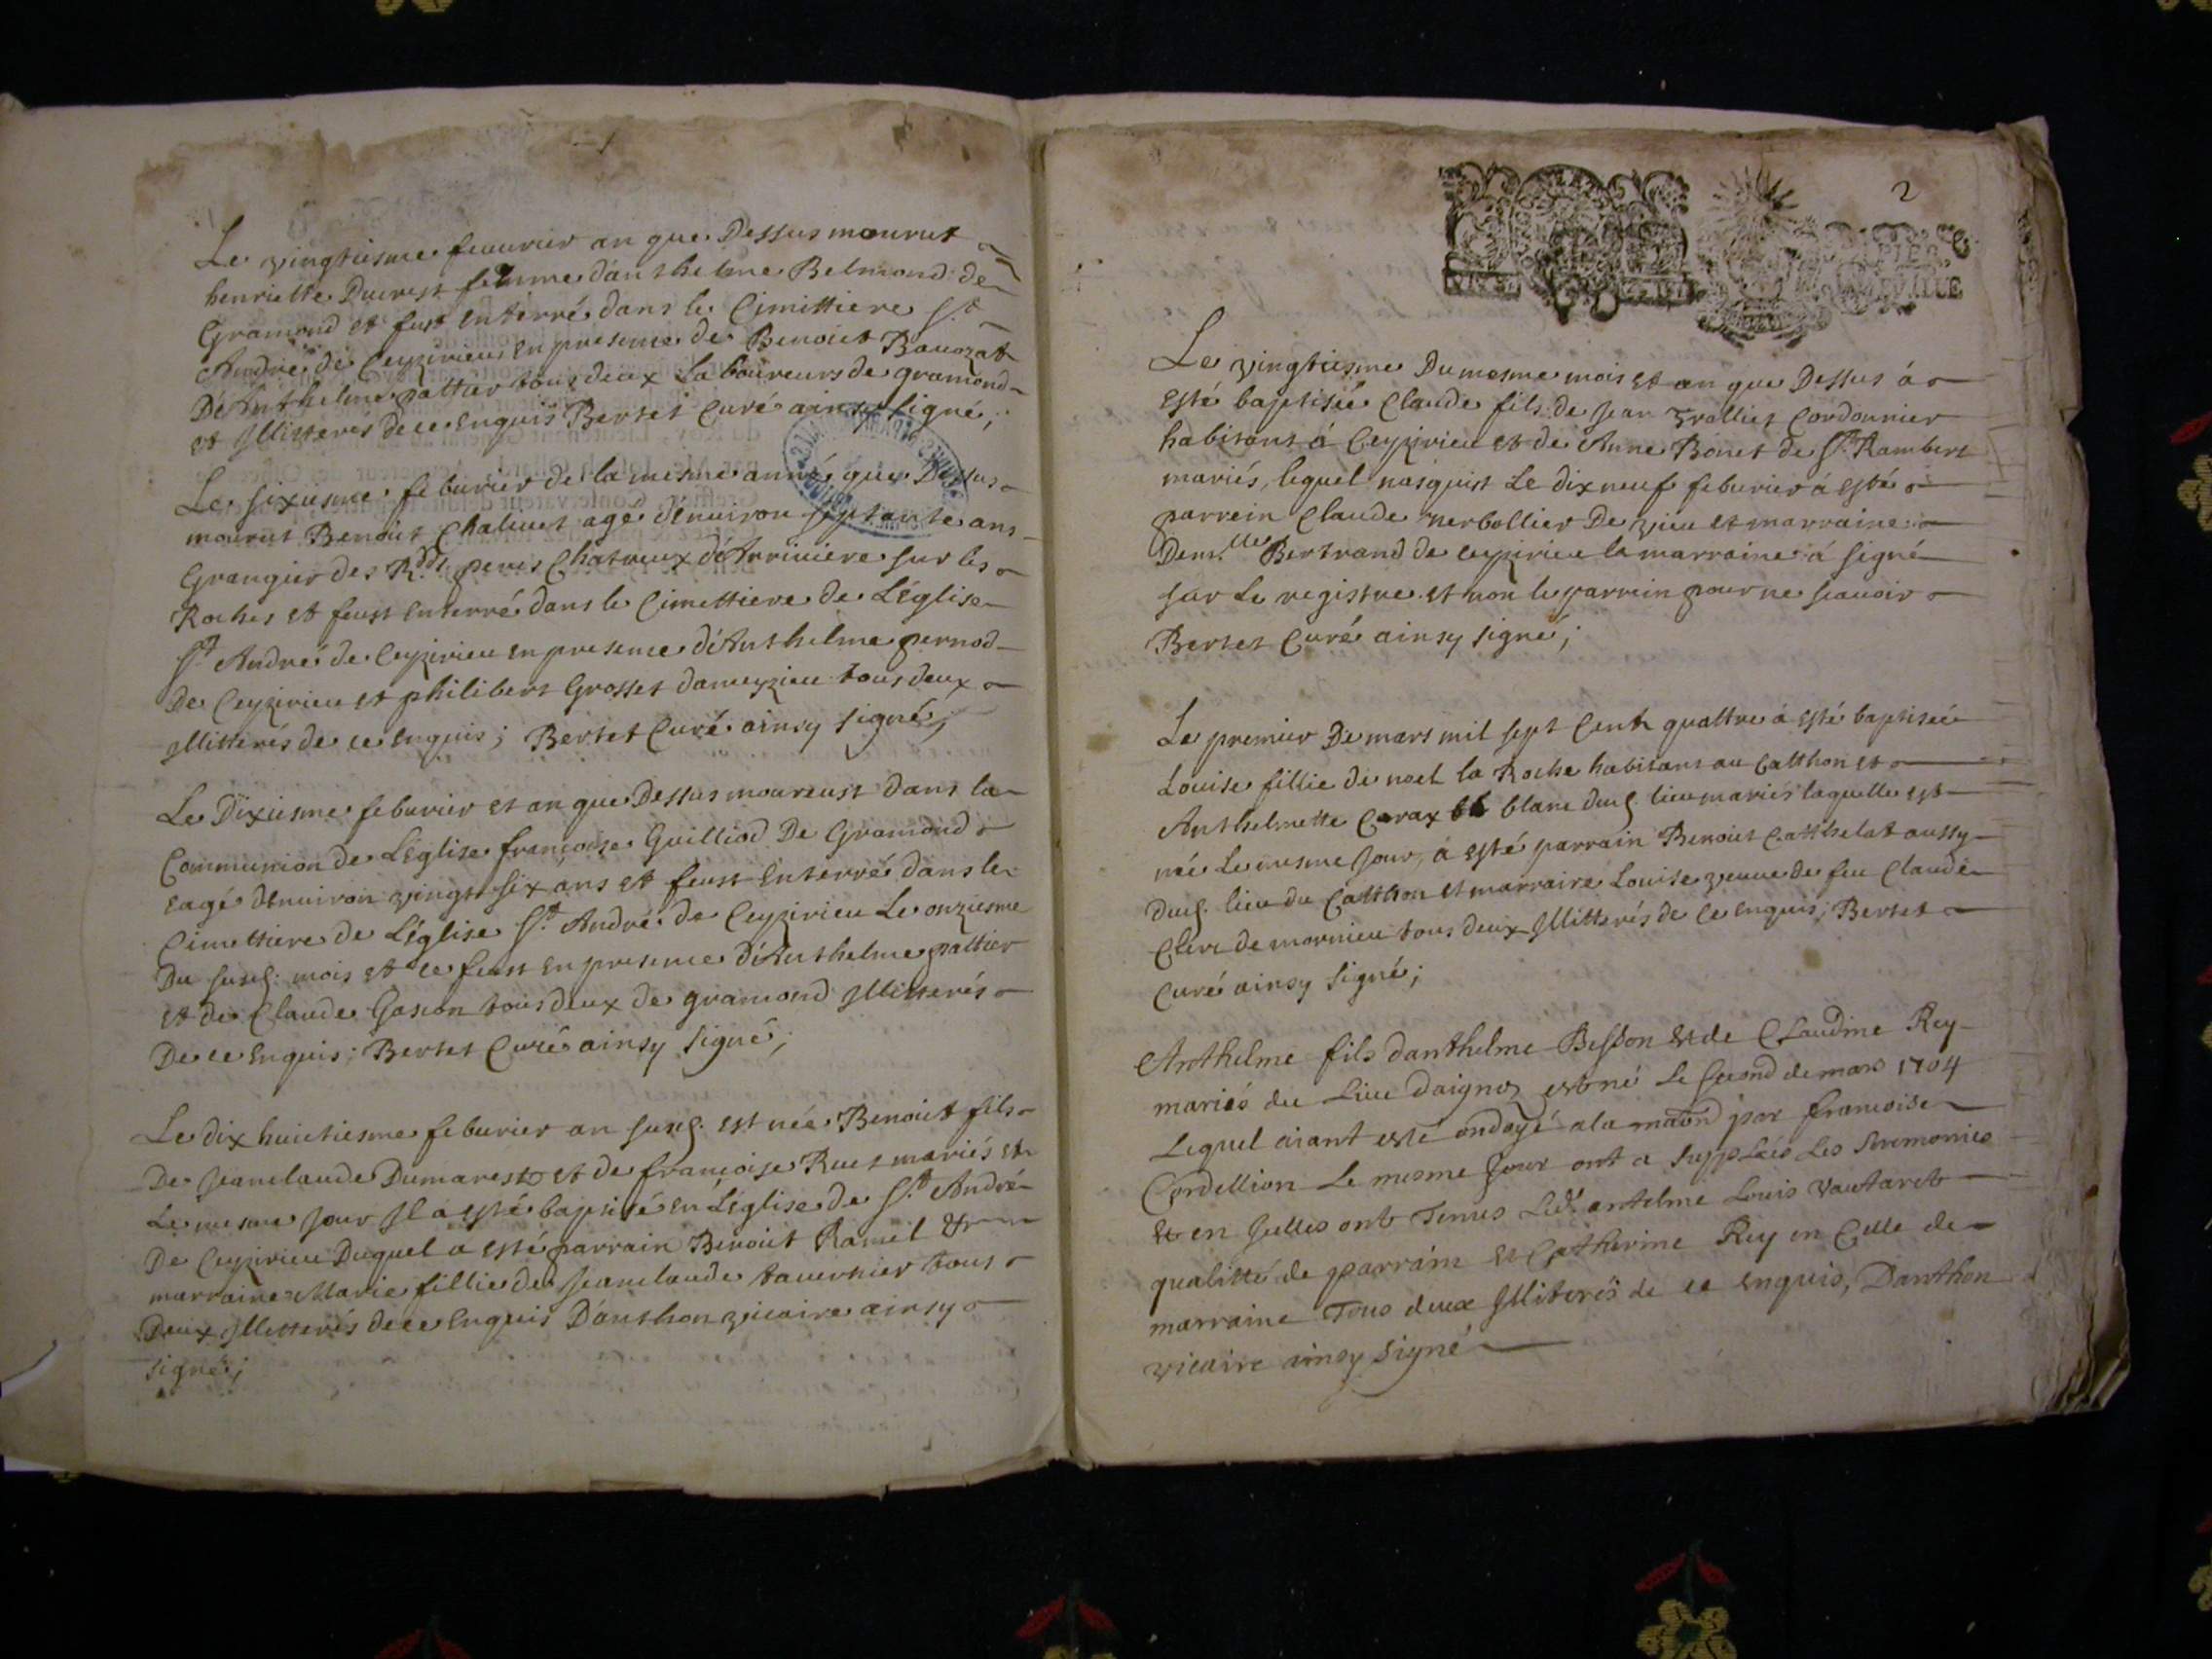 Le vingtiesme feuurier an que Dessus mourut
henriette Ducrest femme d'anthelme Belmond de
Gramond et fust Enterré dans le Cimittiere St
André de Ceyzirieu en presence de Benoict Bauozat
D'Anthelme pattier tous deux Laboureurs de gramond
et Illitterés de ce Enquis Bertet Curé ainsy signé;
Le sixiesme feburier de la mesme année que Dessus
mourut Benoict Chaluet agé d'enuiron septante ans
Grangier des Rds peres Chatreux d'Arriuiere sur les
Roches et feust Enterré dans le Cimettiere de L'Église
St André de Ceyzirieu en presence d'Anthelme pernod
De Ceyzirieu et philibert Grosset dameyzieu tous deux
Illitterés de ce Enquis; Bertet Curé ainsy signé;
Le Dixiesme feburier et an que Dessus moureust dans la
Communion de L'église francoise Guilliod De Gramond
eagé d'enuiron vingt six ans et feust Enterré dans le
Cimettiere de L'église St André de Ceyzirieu Le onziesme
Du susd. mois et ce feust en presence d'Anthelme pattier
et de Claude Gascon tous deux de gramond Illitterés
De ce Enquis; Bertet Curé ainsy signé;
Le dix huictiesme feburier an susd. est née Benoict fils
De Jeanclaude Dumarest et de francoise Ruet mariés et
Le mesme jour Il a esté baptisé en L'église de St André
De Ceyzirieu Duquel a esté parrain Benoict Ramel et
marraine Marie fillie de Jeanclaude tauernier tous
Deux Illitterés de ce Enquis D'anthon vicaire ainsy
signé;
2
Le vingtiesme Du mesme mois et an que Dessus à
Esté baptisée Claude fils de Jean Trolliet Cordonnier
habitant à Ceyzirieu et de Anne Bonet de St Rambert
mariés, lequel nasquist Le dix neuf feburier à esté
parrein Claude Verbollier De vieu et marraine
Demlle Bertrand de ceyzirieu la marraine à signé
sur Le registre et non le parrein pour ne scauoir
Bertet Curé ainsy signé;
Le premier De mars mil sept Cent quattre à esté baptisée
Louise fillie de noel la Roche habitant au Catthon et
Anthelmette Carax blanc dud. lieu mariés laquelle est
née Le mesme jour, à esté parrain Benoict Catthelat aussy
dud. lieu du Catthon et marraine Louise veuue de feu Claude
Clerc de mornieu tous deux Illitterés de ce Enquis; Bertet
Curé ainsy signé;
Anthelme fils danthelme Besson et de Claudine Rey
mariés du Lieu daignoz est né Le second de mars 1704
Lequel aiant esté ondoyé a la maon par francoise
Cordellion Le mesme Jour ont a supplées Les Seremonies
et en Jcelles ont Tenus Led. antelme Louis Vautaret
qualitté de parrain et Catherine Rey en Celle de
marraine Tous deux Illiterés de ce Enquis, Danthon
vicaire ainsy signé